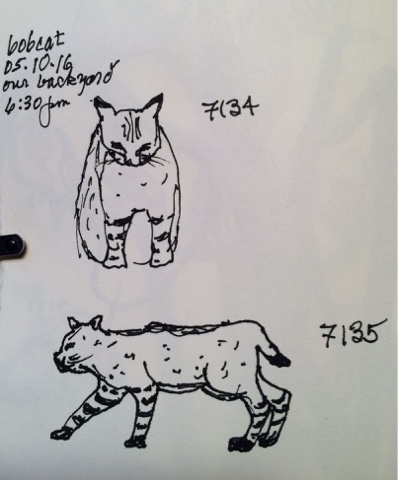 bobcat
05.10.16
our backyard
6:30pm
7134
7135